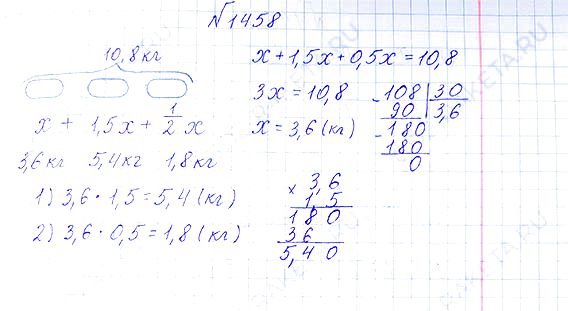 №1458
10,8 кг
x + 1,5x + 1/2 x
3,6 кг 5,4 кг 1,8 кг
1) 3,6 · 1,5 = 5,4 (кг)
2) 3,6 · 0,5 = 1,8 (кг)
x + 1,5x + 0,5x = 10,8
3x = 10,8
x = 3,6 (кг)
- 108 | 30
90 | 3,6
- 180
180
0
× 3,6
1,5
180
36
5,40